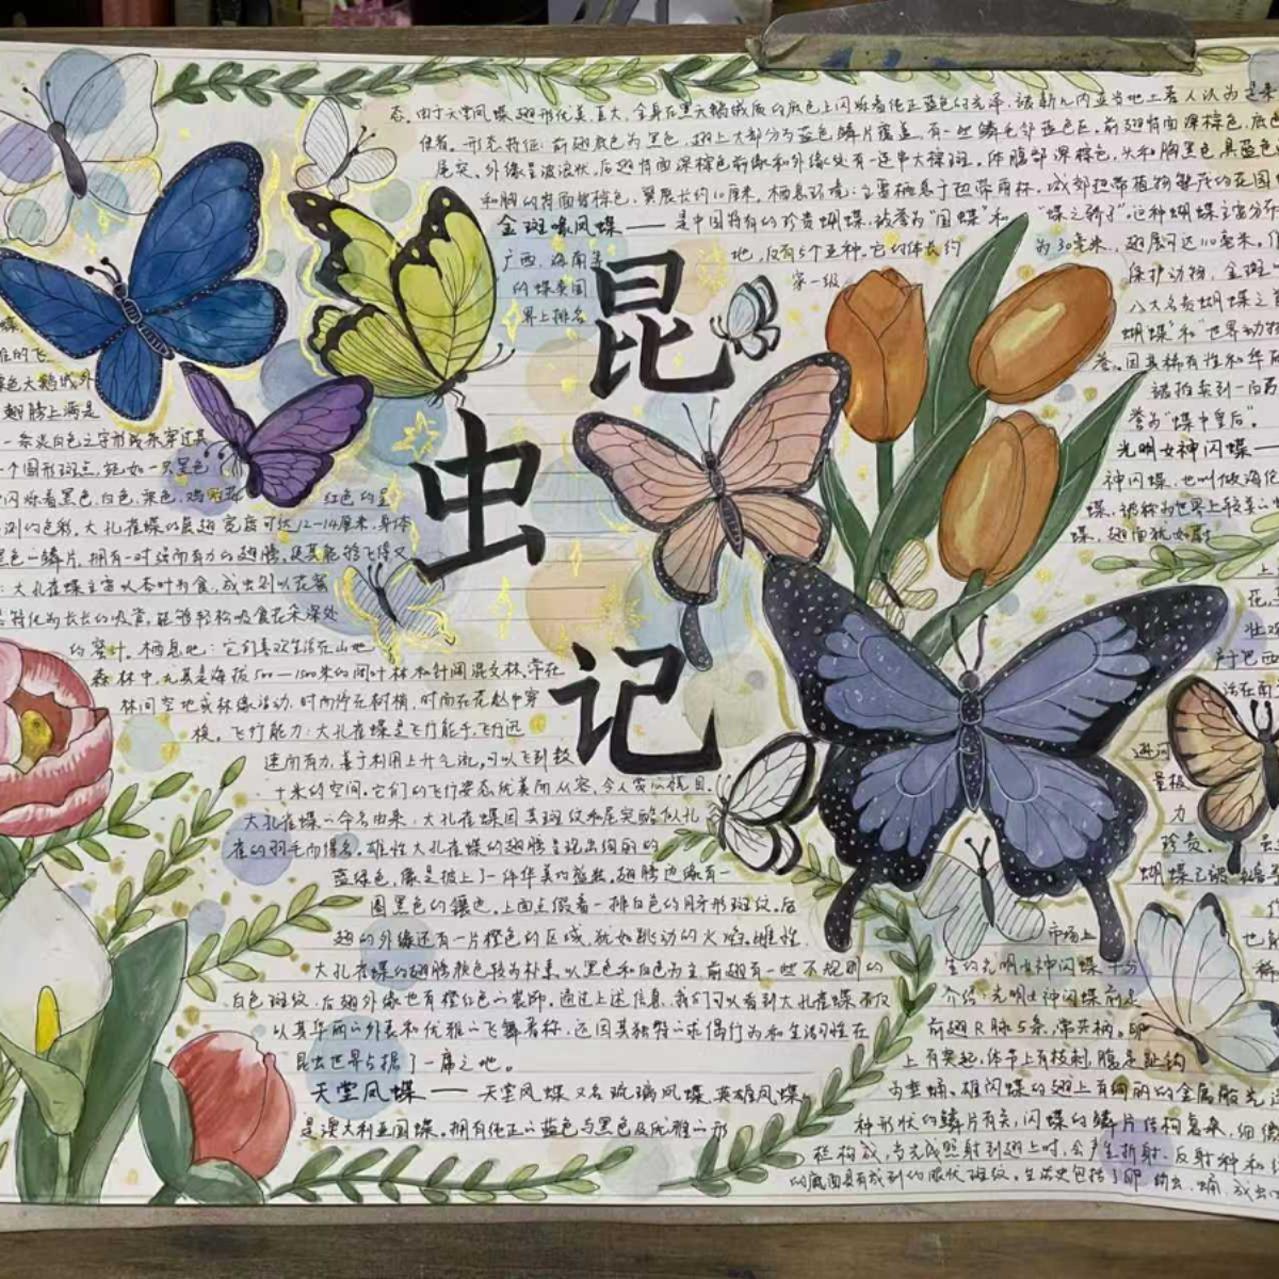 昆
虫
记
蝶,
雅的飞
翅膀上满是
一条淡白色之字形线条穿过其
一个圆形斑点,宛如一只黑色
闪烁着黑色、白色、
红色的呈
测的色彩。大孔雀蝶的展翅宽度可达12-14厘米,身体
黑色的鳞片,拥有一对强而有力的翅膀,使其能够飞得又
:大孔雀蝶主要以杏叶为食,成虫则以花蜜
特化为长长的吸管,能够轻松吸食花朵深处
的蜜汁。栖息地:它们喜欢生活在山地
森林中,尤其是海拔500—1500米的阔叶林和针阔混交林,常在
林间空地或林缘活动,时而停在树梢,时而在花丛中穿
梭。飞行能力:大孔雀蝶是飞行能手,飞行迅
速而有力,善于利用上升气流,可以飞到数
十米的空间。它们的飞行姿态优美而从容,令人赏心悦目。
大孔雀蝶的命名由来:大孔雀蝶因其斑纹和尾突酷似孔
雀的羽毛而得名。雄性大孔雀蝶的翅膀呈现出绚丽的
蓝绿色,像是披上了一件华美的盔甲。翅膀边缘有一
圈黑色的镶边,上面点缀着一排白色的月牙形斑纹。后
翅的外缘还有一片橙色的区域,犹如跳动的火焰。雌性
大孔雀蝶的翅膀颜色较为朴素,以黑色和白色为主,前翅有一些不规则的
白色斑纹,后翅外缘也有橙红色的装饰。通过上述信息,我们可以看到大孔雀蝶不仅
以其华丽的外表和优雅的飞舞著称,还因其独特的求偶行为和生活习性在
昆虫世界占据了一席之地。
天堂凤蝶——天堂凤蝶又名琉璃凤蝶、英雄凤蝶,
是澳大利亚国蝶。拥有纯正的蓝色与黑色及优雅的形
态,由于天堂凤蝶翅形优美、巨大,全身在黑天鹅绒质的底色上闪烁着纯正蓝色的光泽,
使者。形态特征:前翅底色为黑色,翅上大部分为蓝色鳞片覆盖,有一些鳞毛邻蓝色区。前翅背面深棕色,底色
尾突,外缘呈波浪状。后翅背面深棕色,前缘和外缘处有一连串大棕斑。体腹部深棕色,头和胸黑色,具蓝色
和胸的背面皆棕色,翼展长约10厘米。栖息环境:主要栖息于热带雨林、城郊热带植物繁茂的花园
金斑喙凤蝶——是中国特有的珍贵蝴蝶,被誉为“国蝶”和“蝶之骄子”。这种蝴蝶主要分布
广西、海南等地,仅有5个亚种。它的体长约为30毫米,翅展可达110毫米。
的蝶类国家一级保护动物,金斑
界上排名八大名贵蝴蝶之首
蝴蝶”和“世界动物
誉。因其稀有性和华丽
被拍卖到一百万
誉为“蝶中皇后”。
光明女神闪蝶——
神闪蝶,也叫做海伦
蝶,被称为世界上较美的
蝶,翅面犹如蔚
上
花,
产于巴西
活在南
量极
力
珍贵。
蝴蝶已被
市场上
也能
宝的光明女神闪蝶十分稀
介绍:光明女神闪蝶前足
前翅R脉5条,常共柄。卵
上有突起,体节上有枝刺,腹足趾钩
为垂蛹。雄闪蝶的翅上有绚丽的金属般光泽
种形状的鳞片有关,闪蝶的鳞片结构复杂,细微
栏构成,当光线照射到翅上时,会产生折射、反射
的底面具有成列的眼状斑纹。生活史包括了卵、幼虫、蛹、成虫